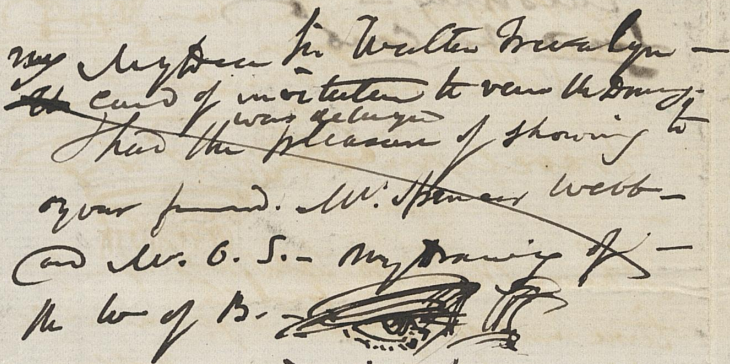 my My Dear Sir Walter Trevelyan —
card of invitation to view the Drawing
was delayed
I had the pleasure of showing to
your friend. Mr. Spencer Webb —
and Mr. O. S. — my Drawing of —
the of B. —